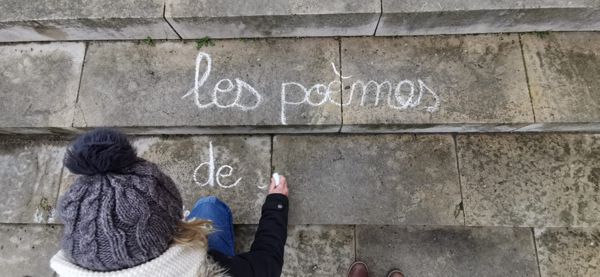 les poèmes
de